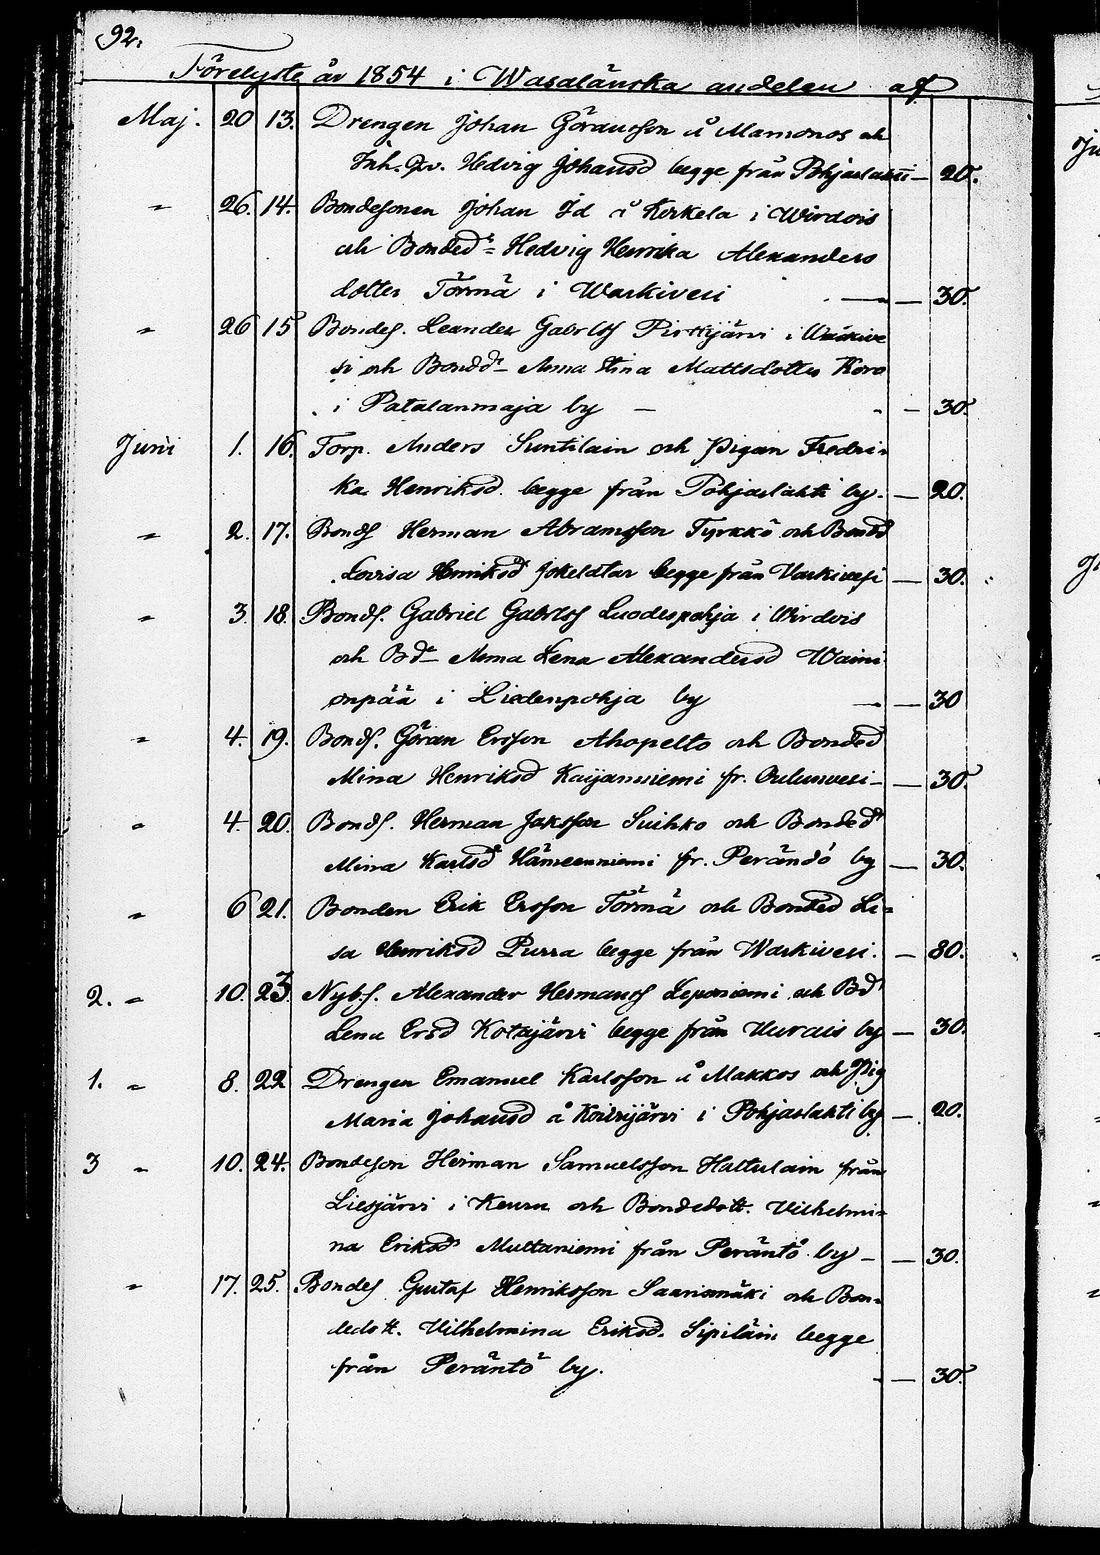 92.
Förelyste år 1854 i Wasalänska andelen af
Maj. 20 13. Drengen Johan Göransson å Mamonos och
Inh. Qv. Hedvig Johansd begge från Pohjaslakti — 20.
" 26. 14. Bondesonen Johan Jd å Kerkela i Wirdois
och Bondedr Hedvig Henrika Alexanders
dotter Törmä i Waskivesi — — 30.
" 26 15 Bondes. Leander Gabrlss Pirttijärvi i Waskive
si och Bonddr Anna Stina Mattsdotter Koro
i Patalanmaja by — — 30.
Juni 1. 16. Torp. Anders Suntilain och Pigan Fredri-
ka Henriksd. begge från Pohjaslakti by. — 20.
" 2. 17. Bonds Herman Abramsson Tyrkkö och Bondd
Lovisa Henriksd Jokelatar begge från Vaskivesi — 30.
" 3. 18. Bonds. Gabriel Gabrlss Luodespohja i Wirdois
och Bdr Anna Lena Alexandersd Waini
onpää i Liedenpohja by — — 30
" 4. 19. Bonds. Göran Ersson Ahopelto och Bonded
Mina Henriksd Kaijanniemi fr. Oulunvesi — — 30.
" 4. 20. Bonds. Herman Jaksson Suihko och Bonded
Mina Karlsd Hämeenniemi fr. Perändö by — 30.
" 6 21. Bonden Erik Ersson Törmä och Bonded Li=
sa Henriksd Purra begge från Waskivesi. — 80.
2. " 10. 23. Nybs. Alexander Hermanss Leponiemi och Bd
Lena Ersd Kotajärvi begge från Uurais by — 30.
1. " 8. 22 Drengen Emanuel Karlsson å Makkos och Pig
Maria Johansd å Koirejärvi i Pohjaslakti by — 20.
3 " 10. 24. Bondeson Herman Samuelsson Hattulain från
Liesjärvi i Keuru och Bondedott. Vilhelmi=
na Eriksd Multaniemi från Peräntö by — — 30.
" 17. 25. Bondes Gustaf Henriksson Saarismäki och Bon-
dedott. Vilhelmina Eriksd. Sipiläin begge
från Peräntö by. — 30.